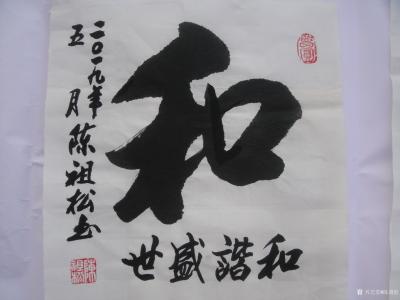 和
和諧盛世
二〇一九年
五月陈祖松书